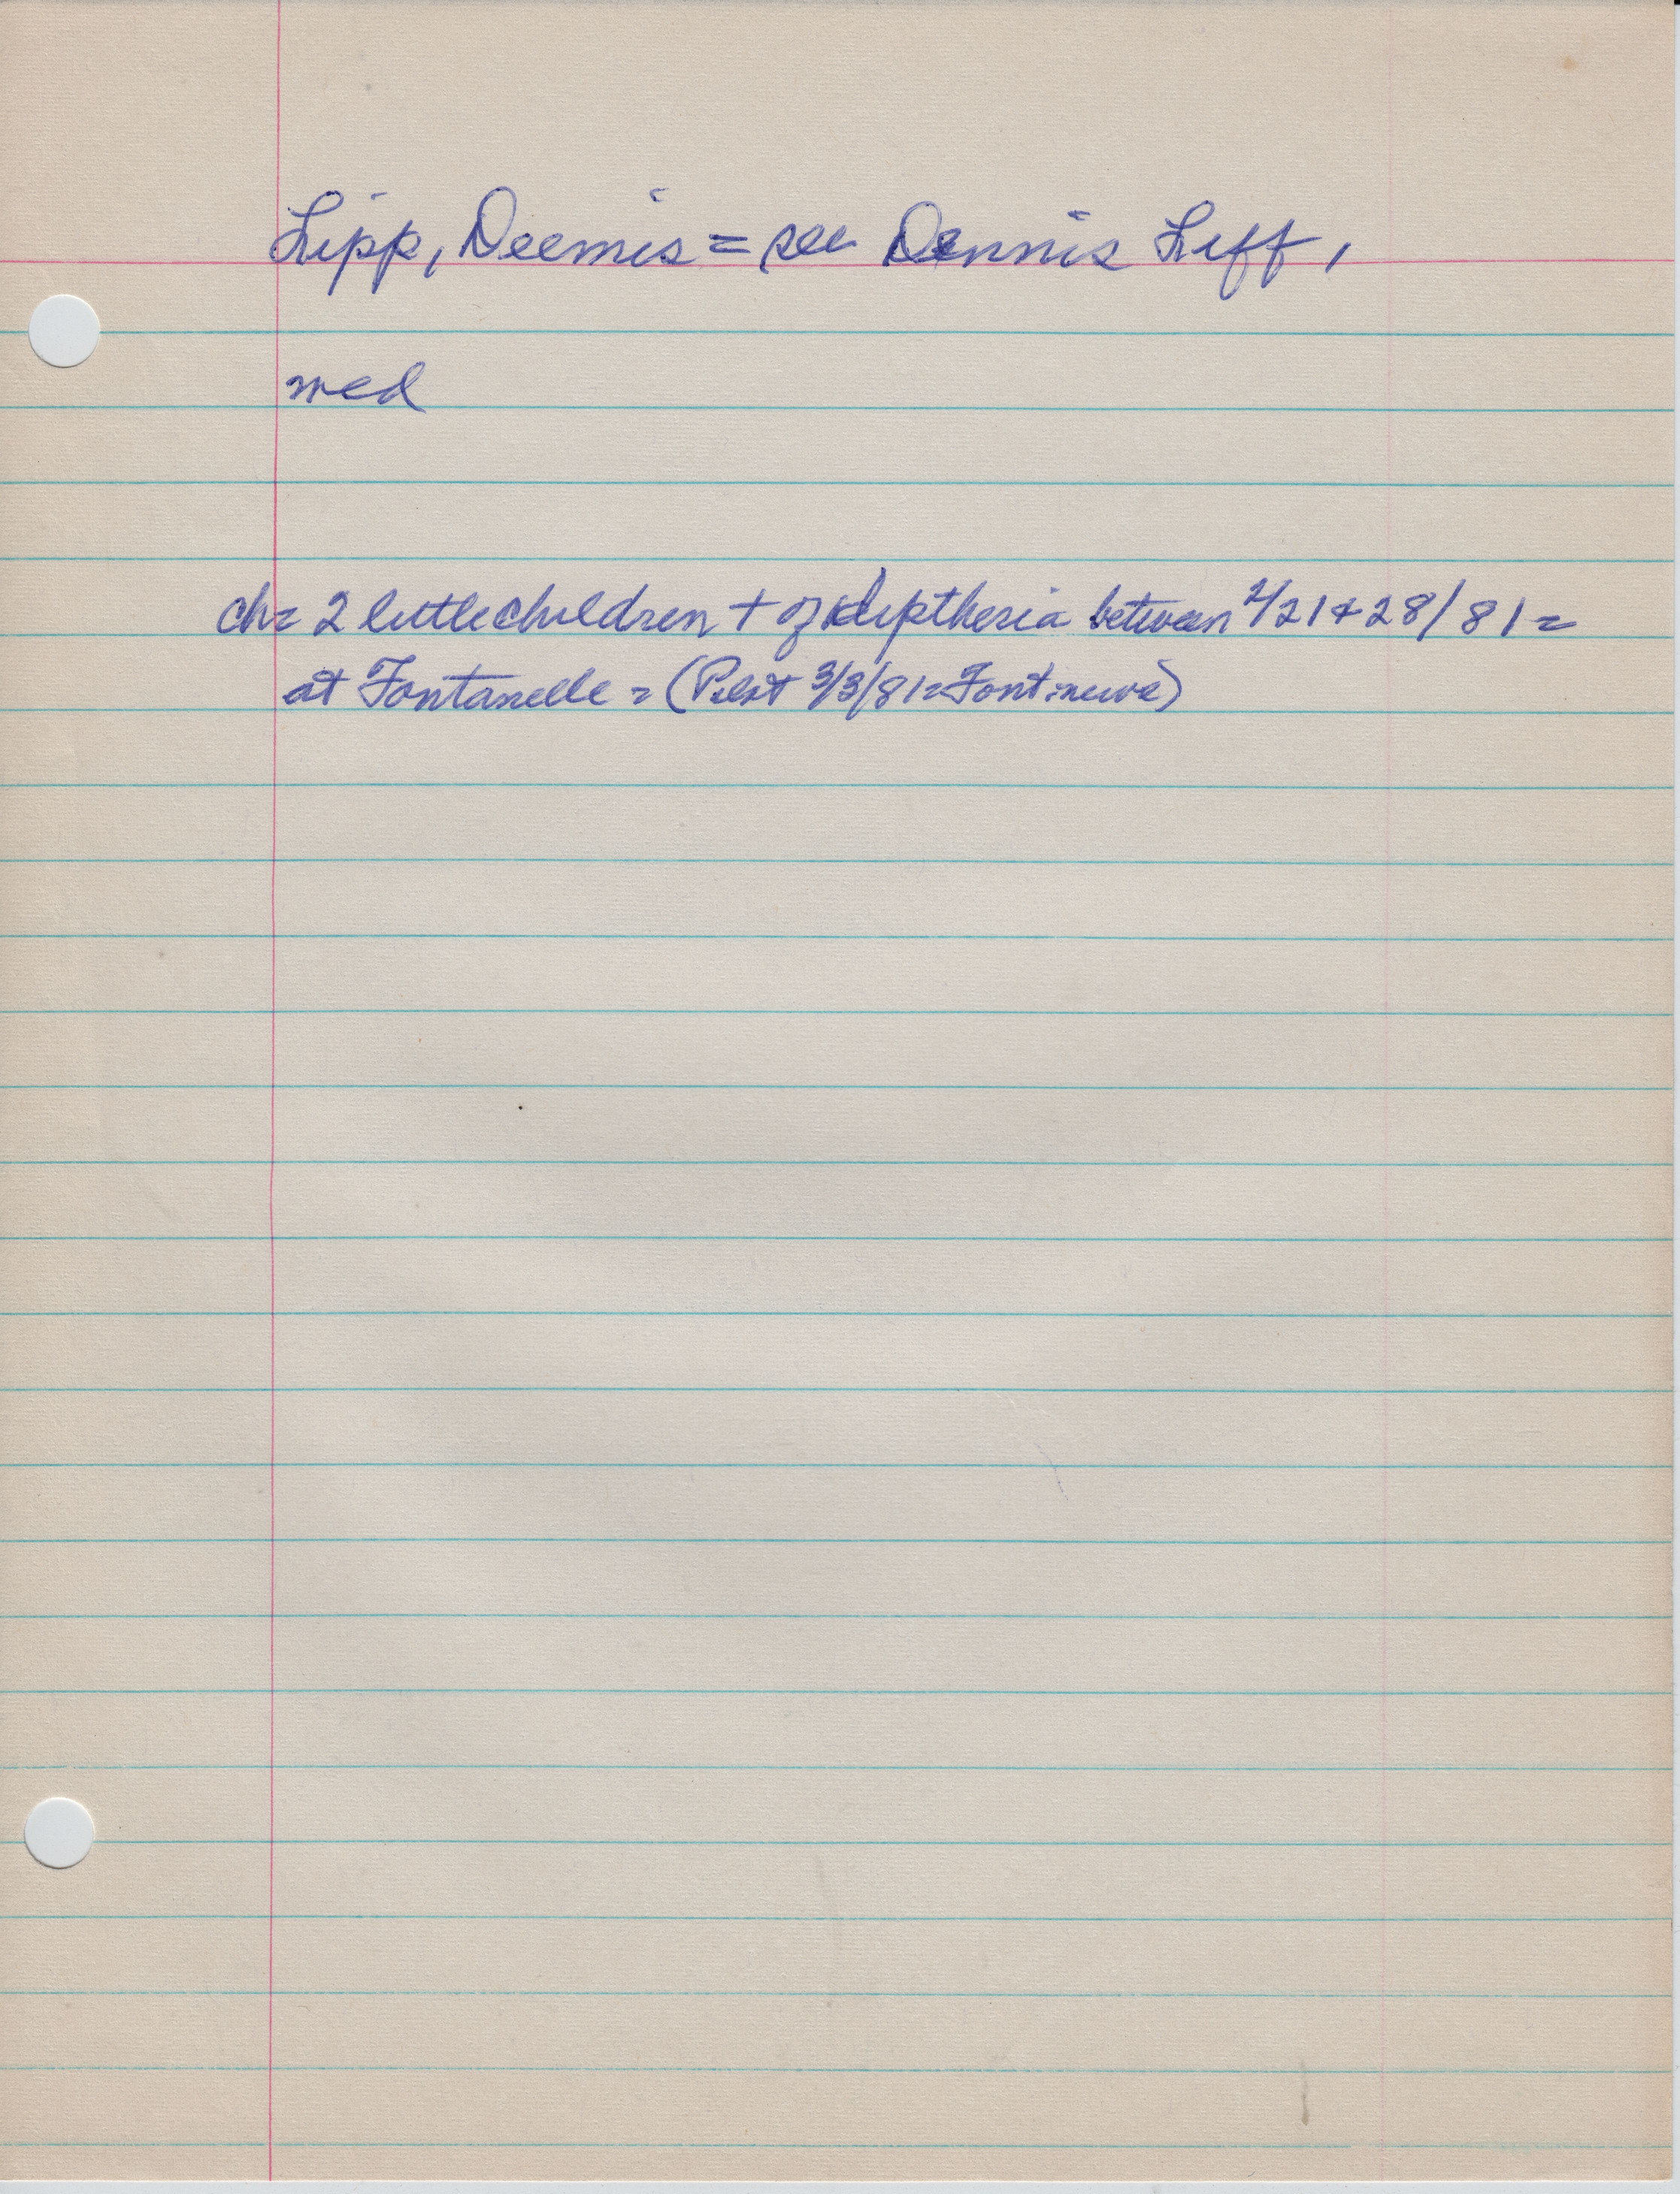 Lipp, Deemis = see Dennis Liff,
med
ch = 2 little children + of diptheria between 2/21 & 28/81 =
at Fontanelle = (Pilot 3/3/81 = Font. news)